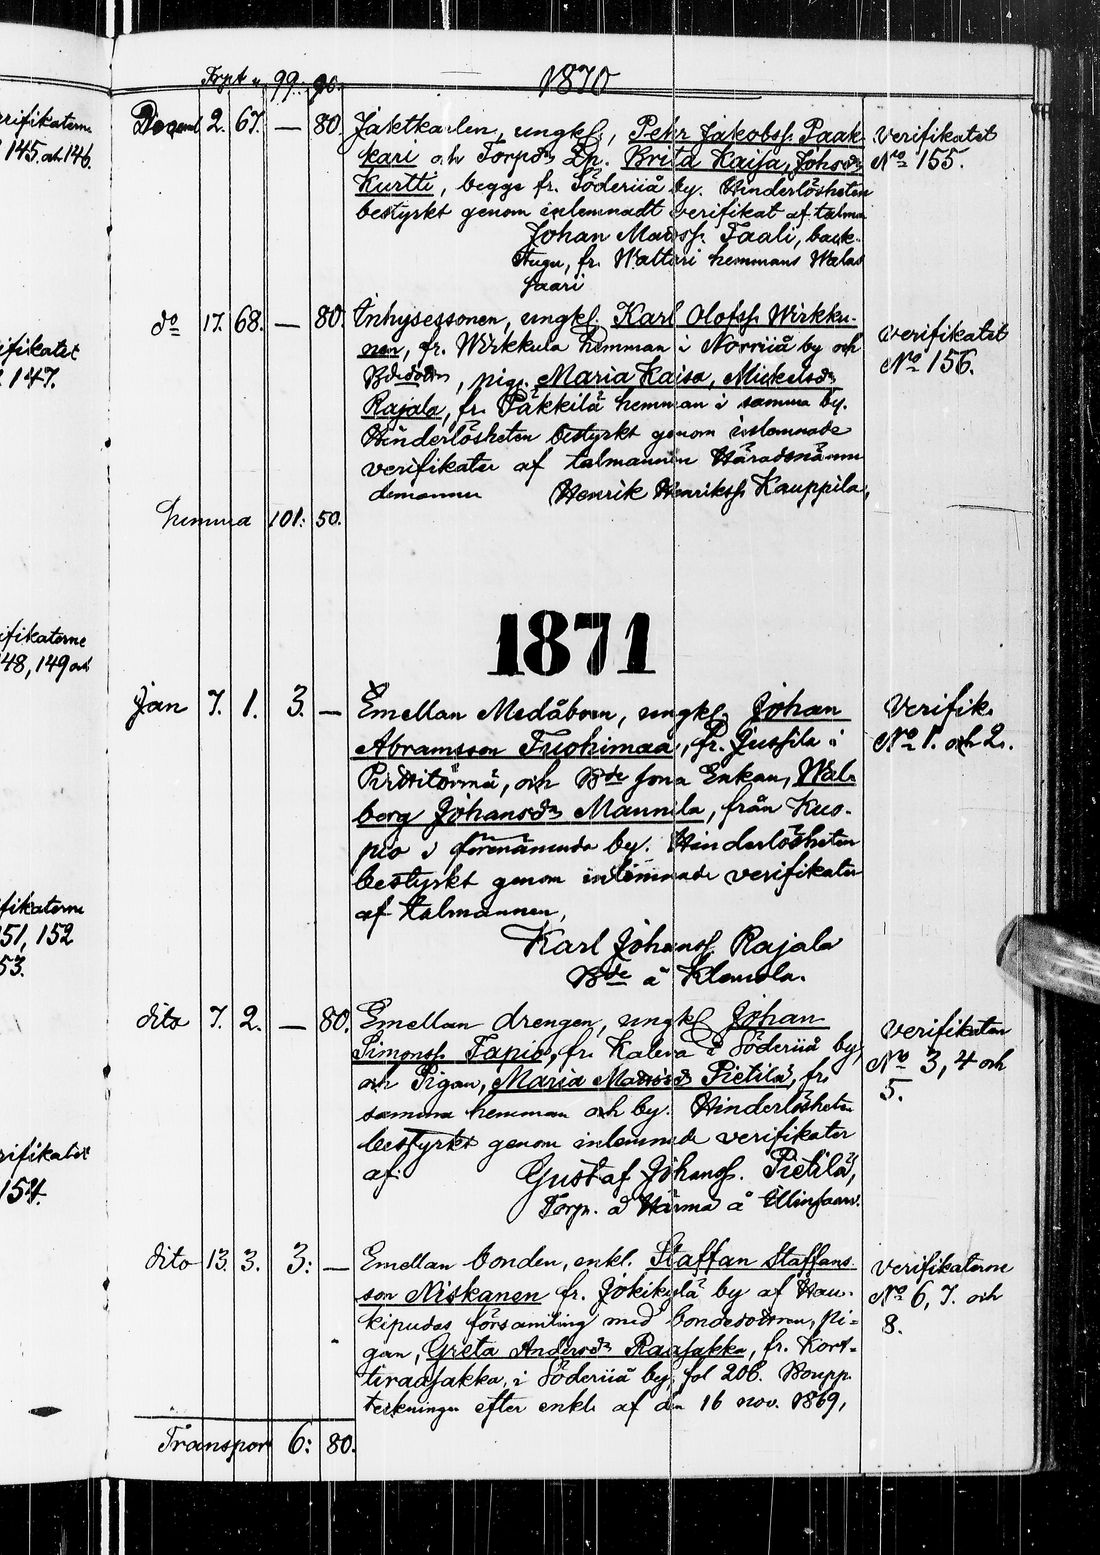 Trpt 99. 90. 1870
rifikaterne
145. och 146.
Decemb 2. 67. — 80. Jaktkarlen, ungkl, Pehr Jakobss. Paak-
kari och Torpdr Dn. Brita Kaisa, Johsdr
Kurtti, begge fr. Söderiiå by. Hinderlösheten
bestyrkt genom inlemnadt verifikat af talma
Johan Madss. Taali, back-
stugu, fr. Wattari hemmans Walas
saari
verifikatet
No 155.
ifikatet
147.
do 17. 68. — 80. Inhysessonen, ungkl. Karl Olofss. Wirkku-
nen, fr. Wirkkula hemman i Norriiå by och
Bdedotdn, pig. Maria Kaisa, Mickelsdr
Rajala, fr. Päkkilä hemman i samma by.
Hinderlösheten bestyrkt genom inlemnade
verifikater af talmannen Häradsnämn
demannen Henrik Henrikss. Kauppila,
verifikatet
No 156.
Summa 101: 50.
1871
ifikaterne
148, 149 och
Jan 7. 1. 3. — Emellan Medåboen, ungkl. Johan
Abramsson Tuohimaa, fr. Jussila i
Pirttitörmä, och Bde sona Enkan, Wal-
borg Johansdr Mannila, från Kuo-
pio i förenämnda by. Hinderlösheten
bestyrkt genom inlemnade verifikater
af talmannen,
Karl Johanss. Rajala
Bde å Klemola.
Verifik.
No 1. och 2.
fikaterne
151, 152
53.
dito 7. 2. — 80. Emellan drengen, ungkl Johan
Simonss. Tapio, fr. Kaleva i Söderiiå by,
och Pigan, Maria Madsdr Pietilä, fr.
samma hemman och by. Hinderlösheten
bestyrkt genom inlemnade verifikater
af. Gustaf Johanss. Pietilä,
Torp. å Härmä å Illinsaari.
verifikaten
No 3, 4 och
5.
rifikatet
154.
dito 13. 3. 3: — Emellan bonden, enkl. Staffan Staffans-
son Niskanen fr. Jokikylä by af Hau-
kipudas församling med bondedottren, pi-
gan, Greta Andersdr Raasakka, fr. Kort-
tiraasakka, i Söderiiå by, fol 206. Boupp
teckningen efter enkl. af den 16 nov. 1869,
verifikaterne
No 6, 7. och
8.
Transport 6: 80.